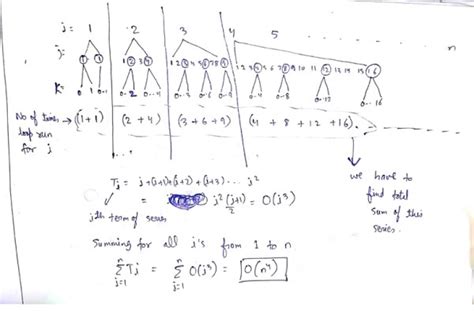 i = 1 2 3 4 5 n
j: 0 1 1 2 3 4 1 2 3 4 5 6 7 8 9 1 2 3 4 5 6 7 8 9 10 11 12 13 14 15 16
K = 0 0..1 0..2 0..4 0..3 0..6 0..9 0..4 0..8 0..12 0..16
No of times → (1+1) (2+4) (3+6+9) (4 + 8 + 12 + 16) . - - -
loop run
for j
...
we have to
find total
sum of this
series.
Tj = j+(j+1)+(j+2)+(j+3)... j²
= j²(j+1)/2 = O(j³)
jth term of series
Summing for all j's from 1 to n
n∑j=1 Tj = n∑j=1 O(j³) = O(n⁴)